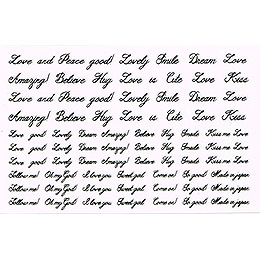 Love and Peace good! Lovely Smile Dream Love
Amazing! Believe Hug Love is Cute Love Kiss
Love and Peace good! Lovely Smile Dream Love
Amazing! Believe Hug Love is Cute Love Kiss
Love good! Lovely Dream Amazing! Believe Hug Smile Kiss me Love
Love good! Lovely Dream Amazing! Believe Hug Smile Kiss me Love
Love good! Lovely Dream Amazing! Believe Hug Smile Kiss me Love
Follow me! Oh my God! I love you Sweet girl Come on! So good! Made in japan
Follow me! Oh my God! I love you Sweet girl Come on! So good! Made in japan
Follow me! Oh my God! I love you Sweet girl Come on! So good! Made in japan